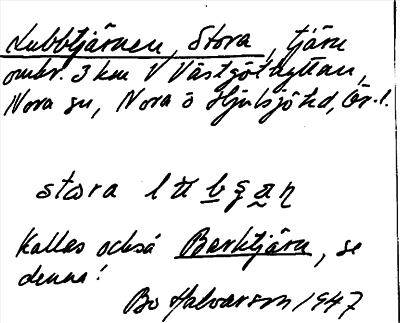 Lubbtjärnen, Stora, tjärn
omkr. 3 km V Västgöthyttan,
Nora sn, Nora o Hjulsjö hd, Ör. l.
Kallas också Barktjärn, se
denna!
Bo Halvarson 1947